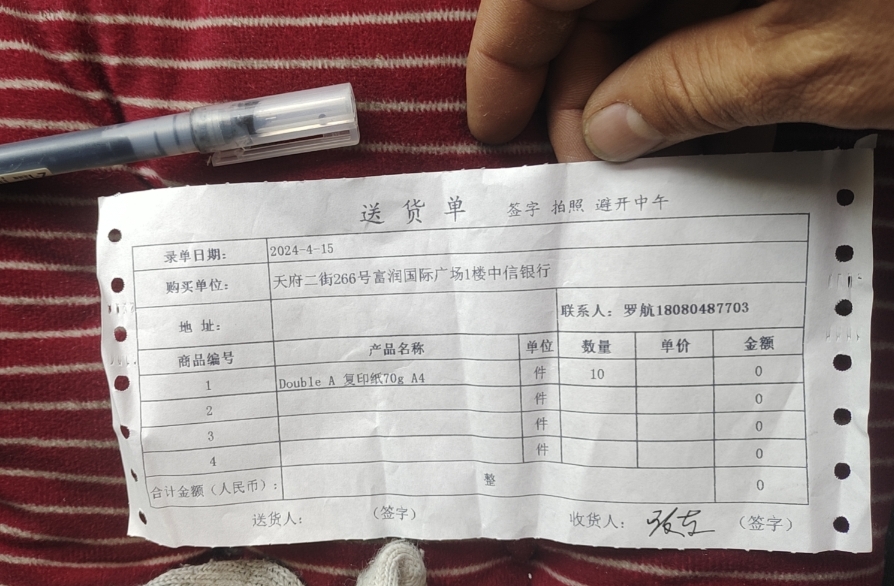 送货单 签字 拍照 避开中午
录单日期: 2024-4-15
购买单位: 天府二街266号富润国际广场1楼中信银行
地 址: 联系人: 罗航18080487703
商品编号 产品名称 单位 数量 单价 金额
1 Double A 复印纸70g A4 件 10 0
2 件 0
3 件 0
4 件 0
合计金额(人民币): 整 0
送货人: (签字) 收货人: (签字)